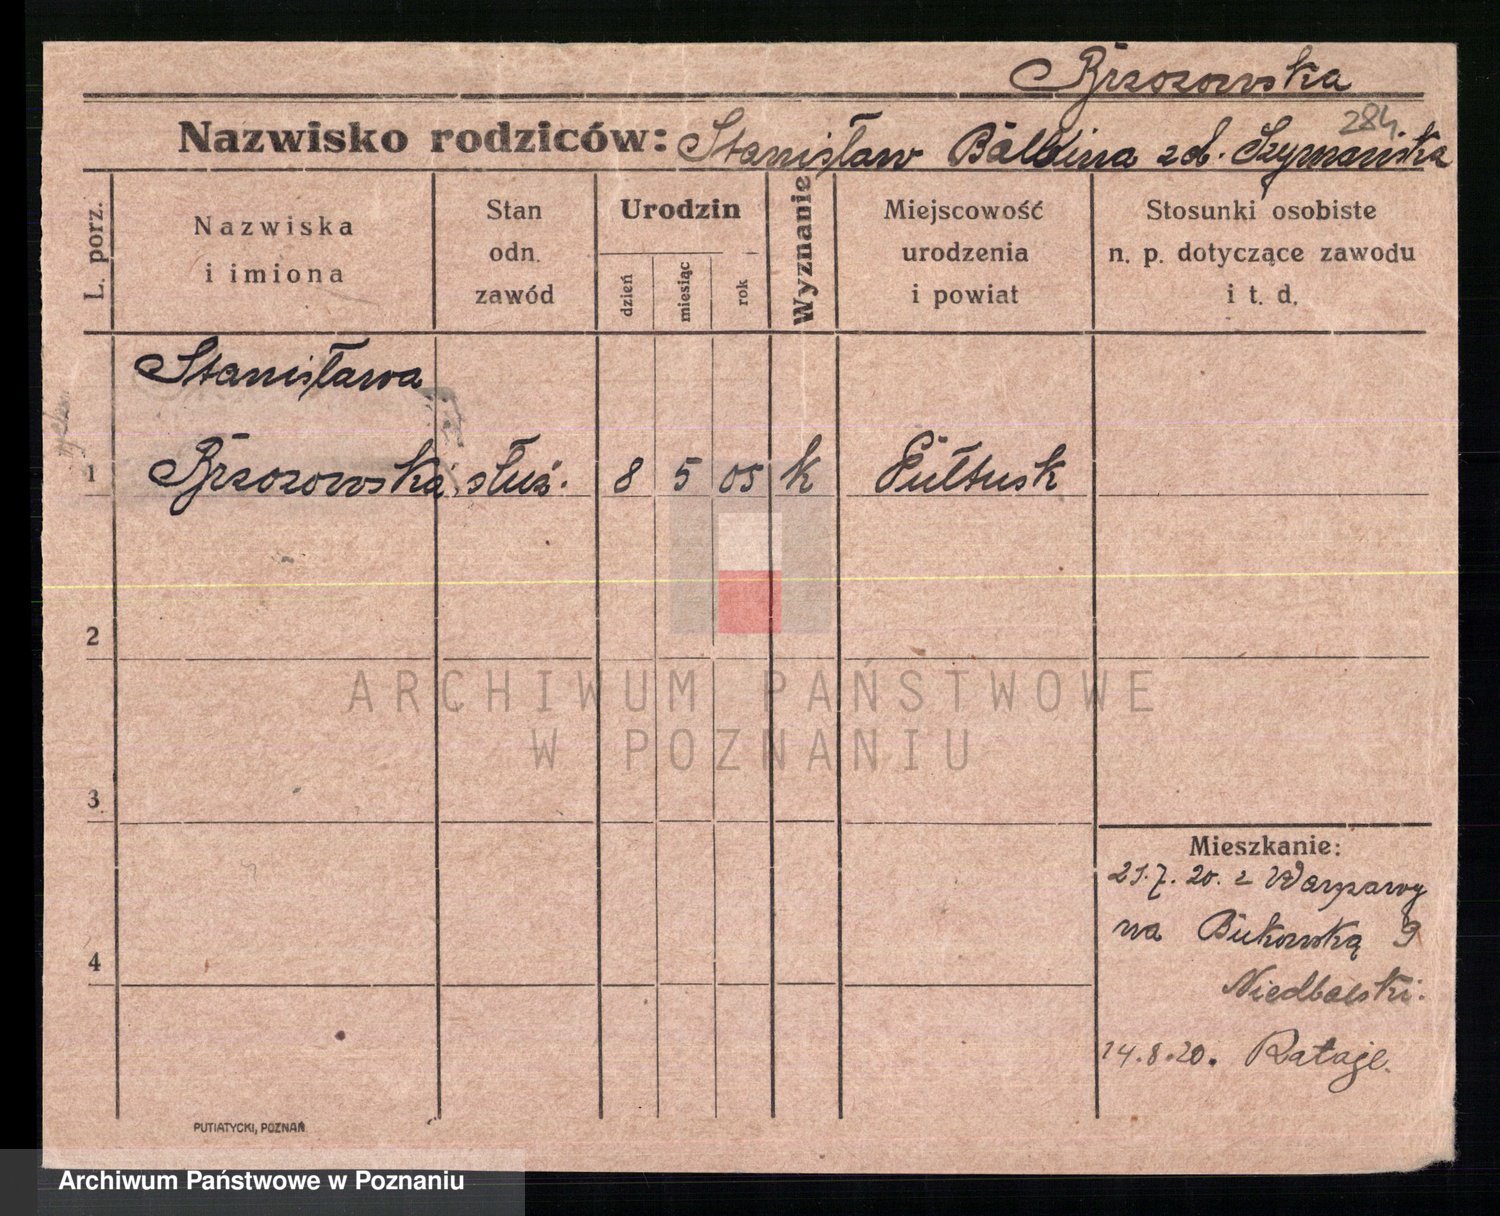 Brzozowska
284.
Nazwisko rodziców: Stanisław Balbina zd. Szymańska
L. porz.
Nazwiska
i imiona
Stan
odn.
zawód
Urodzin
dzień
miesiąc
rok
Wyznanie
Miejscowość
urodzenia
i powiat
Stosunki osobiste
n. p. dotyczące zawodu
i t. d.
Stanisława
1 Brzozowska służ. 8 5 05 k Pułtusk
2
ARCHIWUM PAŃSTWOWE
W POZNANIU
3
Mieszkanie:
21.7.20. z Warszawy
na Bukowską 9
4
Niedbalski.
14.8.20. Rataje.
PUTIATYCKI, POZNAŃ
Archiwum Państwowe w Poznaniu